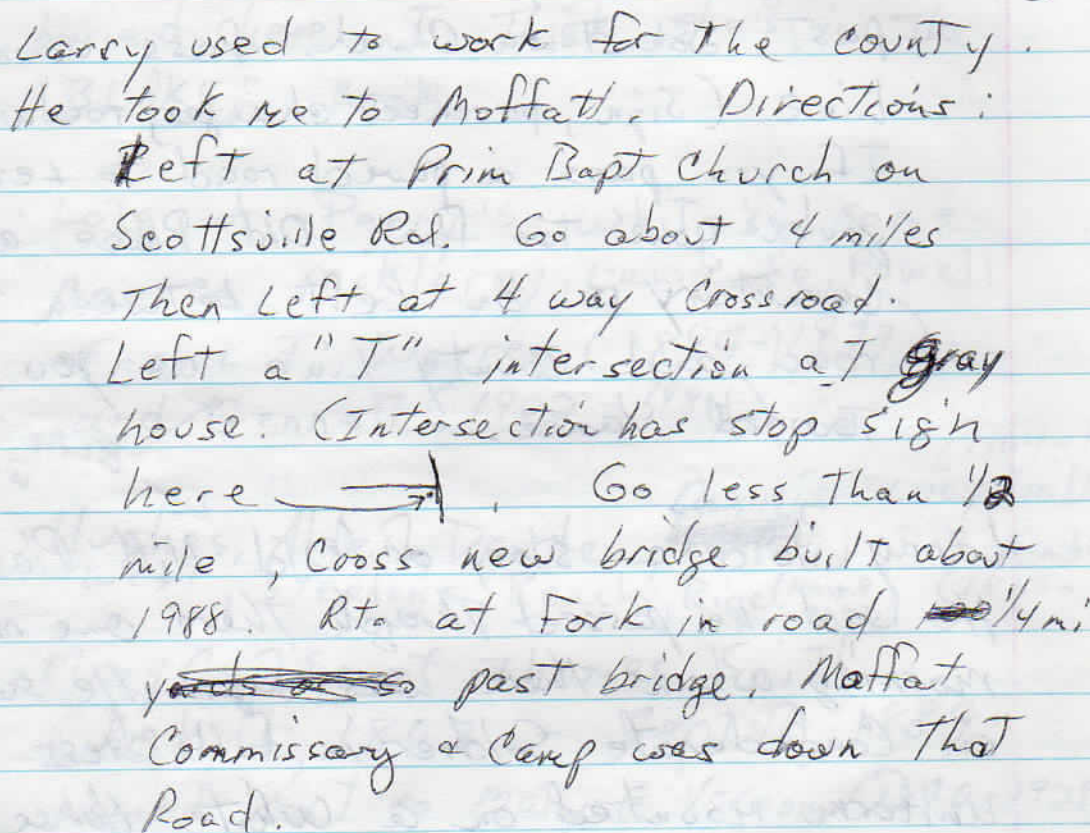 Larry used to work for the county.
He took me to Moffatt. Directions:
Left at Prim Bapt Church on
Scottsville Rd. Go about 4 miles
Then Left at 4 way Crossroad.
Left a "T" intersection aT gray
house. (Intersection has stop sign
here . Go less Than 1/2
mile, Cooss new bridge built about
1988. Rt. at Fork in road 1/4 mi.
past bridge. Moffat
Commissary & Camp was down That
Road.